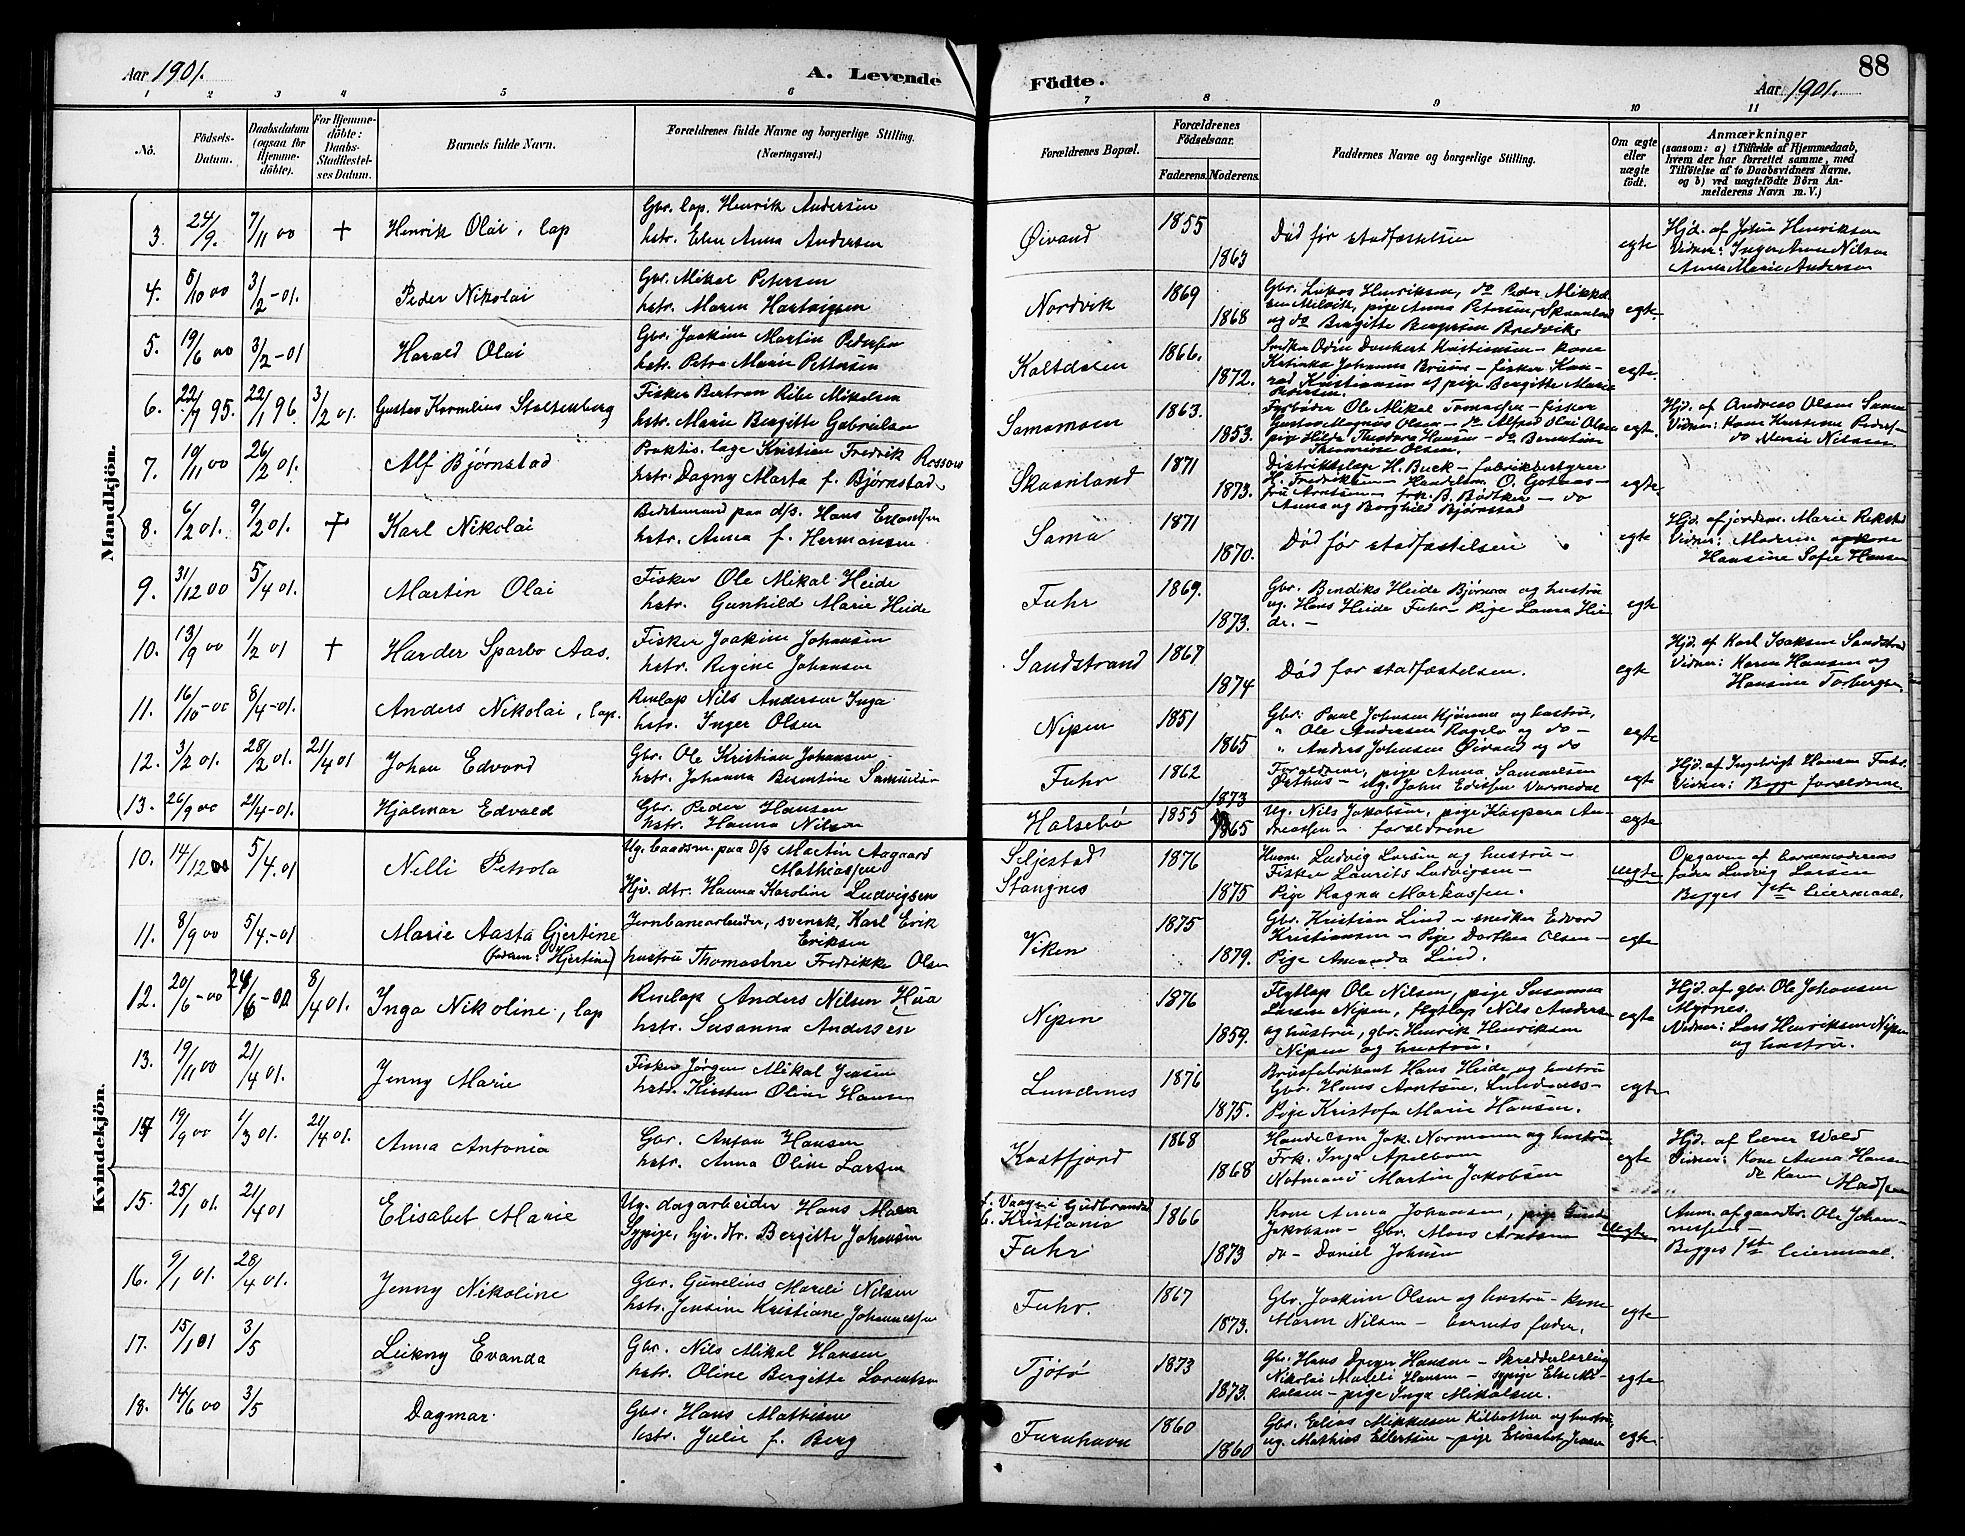 Aar 1901.
A. Levende Födte.
88
Aar 1901.
1 2 3 4 5 6 7 8 9 10 11
No.
Födsels-Datum.
Daabsdatum (ogsaa for Hjemmedöbte).
For Hjemmedöbte: Daabs-Stadfæstelses Datum.
Barnets fulde Navn.
Forældrenes fulde Navne og borgerlige Stilling.
(Næringsvei.)
Forældrenes Bopæl.
Forældrenes Födselsaar.
Faderens. Moderens.
Faddernes Navne og borgerlige Stilling.
Om ægte eller uægte födt.
Anmærkninger
(saasom: a) i Tilfælde af Hjemmedaab, hvem der har forrettet samme, med Tilföielse af to Daabsvidners Navne, og b) ved uægtefödte Börn Anmelderens Navn m. V.)
Mandkjön.
3. 24/9. 7/11 00 + Henrik Olai, lap
Gbr. lap. Henrik Andersen
hstr. Elen Anna Andersen
Øivand 1855 1863 Død før stadfæstelsen egte
Hjd. af Johan Henriksen
Vidner: Inger Anna Nilsen
Anna Marie Andersen
4. 5/10 00 3/2-01. Peder Nikolai
Gbr. Mikal Petersen
hstr. Maren Hartvigsen
Nordvik 1869 1868
Gbr. Lukas Henriksen, do Peder Mikkelsen Melvik, pige Anna Petersen, Skaanland
og do Bergitte Bergersen Bredvik.
egte.
5. 19/6 00 3/2-01 Harald Olai
Gbr. Joakim Martin Pedersen
hstr. Petra Marie Pettersen
Kaltdalen 1866. 1872.
Snedker Odin Dankert Kristiansen - kone
Katinka Johannes Bruun - fisker Konrad Kristiansen og pige Bergitte Marie
egte.
6. 22/7 95. 22/1 96. 3/2 01. Gustav Kornelius Stoltenberg
Fisker Bertran Ribe Mikalsen
hstr. Marie Bergitte Gabrielsen
Samamoen 1863. 1853.
Fyrbøder Ole Mikal Tomassen - fisker
Gustav Magnus Olsen - do Alfred Olai Olsen
pige Hilda Theodora Hansen - do Berntine
Thomine Olsen.
egte.
Hjd. af Andreas Olsen Sama
Vidner: Kone Kirstine Peders-
do Marie Nilsen
7. 19/11 00 26/2 01. Alf Bjørnstad
Praktis. læge Kristian Fredrik Rossow
hstr. Dagny Marta f. Bjørnstad
Skaanland 1871 1873.
Distriktslæge H. Buck - fabrikbestyrer
H. Fredriksen - Handelsm. O. Gotaas-
fru Arntsen - frk. B. Bødtker - do
Anna og Borghild Bjørnstad
egte.
8. 6/2 01. 9/2 01. + Karl Nikolai
Bedstemand paa d/s. Hans Erlandsen
hstr. Anna f. Hermansen
Sama 1871 1870. Død før stadfæstelsen egte
Hjd. af jordem. Marie Rekstad
Vidner: Moderen og kone
Hansine Sofie Hansen
9. 31/12 00 5/4 01. Martin Olai
Fisker Ole Mikal Heide
hstr. Gunhild Marie Heide
Fuhr 1869. 1873.
Gbr. Bendiks Heide Bjørnrå og hustru
ug. Hans Heide Fuhr - Pige Laura Heide. -
egte
10. 13/9 00 1/2 01 + Harder Sparbo Aas.
Fisker Joakim Johansen
hstr. Regine Johansen
Sandstrand 1867 1874 Død før stadfæstelsen. egte
Hjd. af Karl Isaksen Sandstrand
Vidner: Karen Hansen og
Hansine Torbergsen
11. 16/10-00 8/4-01. Anders Nikolai, lap.
Renlap Nils Andersen Inga
hstr. Inger Olsen
Nipen 1851 1865
Gbr. Paul Johnsen Kjønna og hustru,
" Ole Andersen Rogela og do -
" Anders Johnsen Øivand og do
egte
12. 3/2 01. 28/2 01. 21/4 01 Johan Edvard
Gbr. Ole Kristian Johansen
hstr. Johanna Berntine Samuelsen
Fuhr 1862 1873
Forældrene, pige Anna Samuelsen
- ug. John Eriksen Varmedal
egte
Hjd. af Ingebrigt Hansen Fuhr.
Vidner: Begge forældrene
13. 26/9 00 21/4-01. Hjalmar Edvald
Gbr. Peder Hansen
hstr. Hanna Nilsen
Halsebø 1855 1865
Ug. Nils Jakobsen, pige Kaspara Andreassen - forældrene
egte
Kvindekjön.
10. 14/12 00 5/4.01 Nelli Petrola
Ug. baadsm. paa D/s Martin Aagaard
Mathiassen
Hjv. dtr. Hanna Karoline Ludvigsen
Seljestad
Stangnes
1876 1875
Husm. Ludvig Larsen og hustru -
Fisker Laurits Ludvigsen -
Pige Ragna Markussen.
uegte
Opgaven af barnemoderens
fader Ludvig Larsen
Begges 1ste leiermaal.
11. 8/9 00 5/4.-01 Marie Aasta Gjertine
(faderen: Hjertine)
Jernbanearbeider, svensk, Karl Erik
Eriksen
hustru Thomasine Fredrikke Olsen
Viken 1875 1879.
Gbr. Kristian Lind - snedker Edvard
Kristiansen - Pige Dorthea Olsen -
Pige Amanda Lind.
egte
12. 20/6-00 24/6-00 8/4 01. Inga Nikoline, lap
Renlap Anders Nilsen Hua
hstr. Susanna Andersen
Nipen 1876 1859.
Flytlap Ole Nilsen, pige Susanna
Larsen Nipen, flytlap Nils Andersen
og hustru, gbr. Henrik Henriksen
Nipen og hustru.
egte
Hjd. af gbr. Ole Johansen
Myrnes.
Vidner: Lars Henriksen Nipen
og hustru.
13. 19/11 00 21/4 01. Jenny Marie
Fisker Jørgen Mikal Jensen
hstr. Kirsten Oline Hansen
Lundenes 1876 1875.
Brusfabrikant Hans Heide og hustru
Gbr. Hans Arntsen, Lundenes -
Pige Kristofa Marie Hansen.
egte
14 19/9 00 1/3 01. 21/4 01. Anna Antonia
Gbr. Anton Hansen
hstr. Anna Oline Larsen
Kastfjord 1868 1868
Handelsm. Jak. Normann og hustru
Frk. Inga Apelbom
Notmand Martin Jakobsen
egte
Hjd. af lærer Wold
Vidner: Kone Anna Hansen
do Karen Madsen
15. 25/1 01. 21/4 01 Elisabet Marie
Ug. dagarbeider Hans Moen
Sypige, hjv. dtr. Bergitte Johansen
f. Vaage i Gudbrandsd.
b. Kristiania
Fuhr
1866 1873
Kone Anna Johansen, pige
Jakobsen - Gbr. Moas Arntsen
do - Daniel Johnsen
uegte
Anm. af gaardbr. Ole Johannessen -
Begges 1ste leiermaal.
16. 9/1 01. 28/4 01. Jenny Nikoline
Gbr. Gunelius Mareli Nilsen
hstr. Jensine Kristiane Johannessen
Fuhr. 1867 1873.
Gbr. Joakim Olsen og hustru - kone
Maren Nilsen - barnets fader.
egte
17. 15/1 01 3/5 Leikny Evanda
Gbr. Nils Mikal Hansen
hstr. Oline Bergitte Lorentsen
Tjøtø 1873 1873.
Gbr. Hans Dreyer Hansen - Skrædderlærling
Nikolai Mareli Hansen - sypige Else Mikalsen - pige Inga Mikalsen.
egte
18. 14/6 00 3/5 Dagmar.
Gbr. Hans Mathisen
hstr. Julie f. Berg
Furuhavn 1860 1860
Gbr. Elias Mikkelsen Kilbotten og hustru,
ug. Mathias Eilertsen - pige Elisabet Jensen
egte